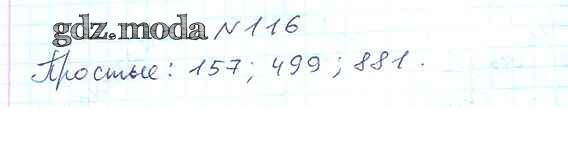 gdz.moda №116
Простые: 157; 499; 881.